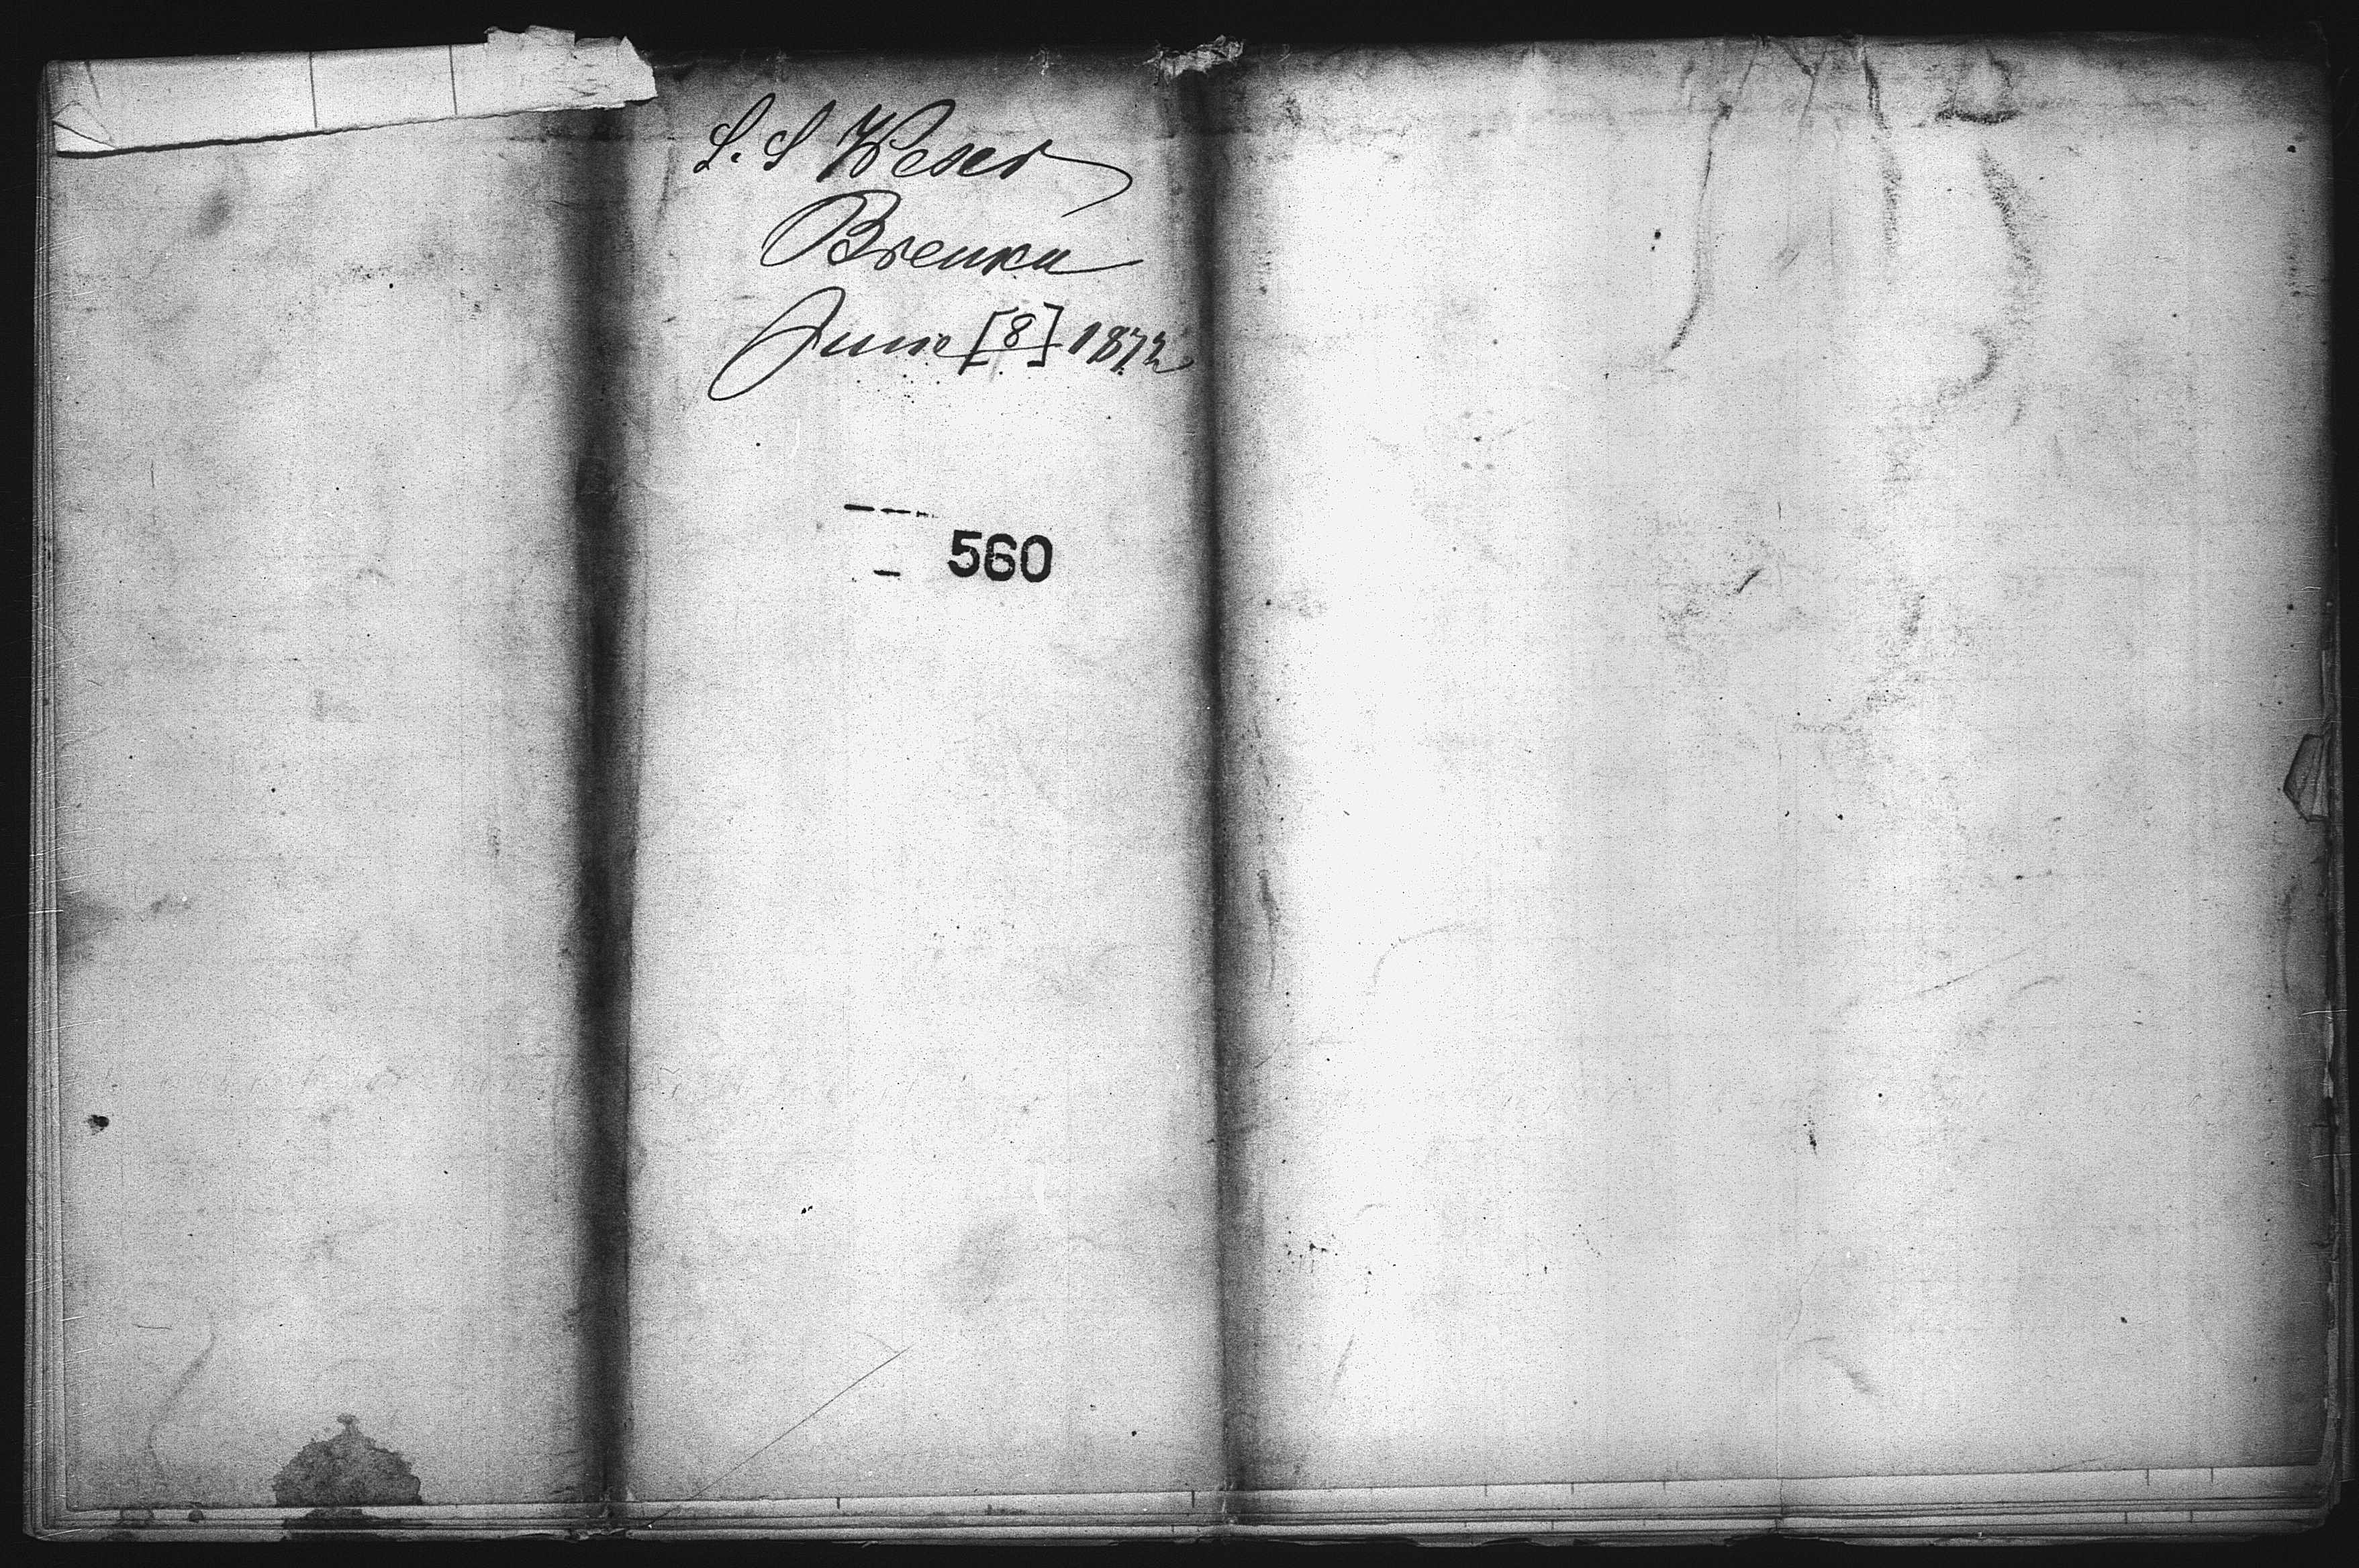 S. S Weser
Bremen
June [8] 1872
560